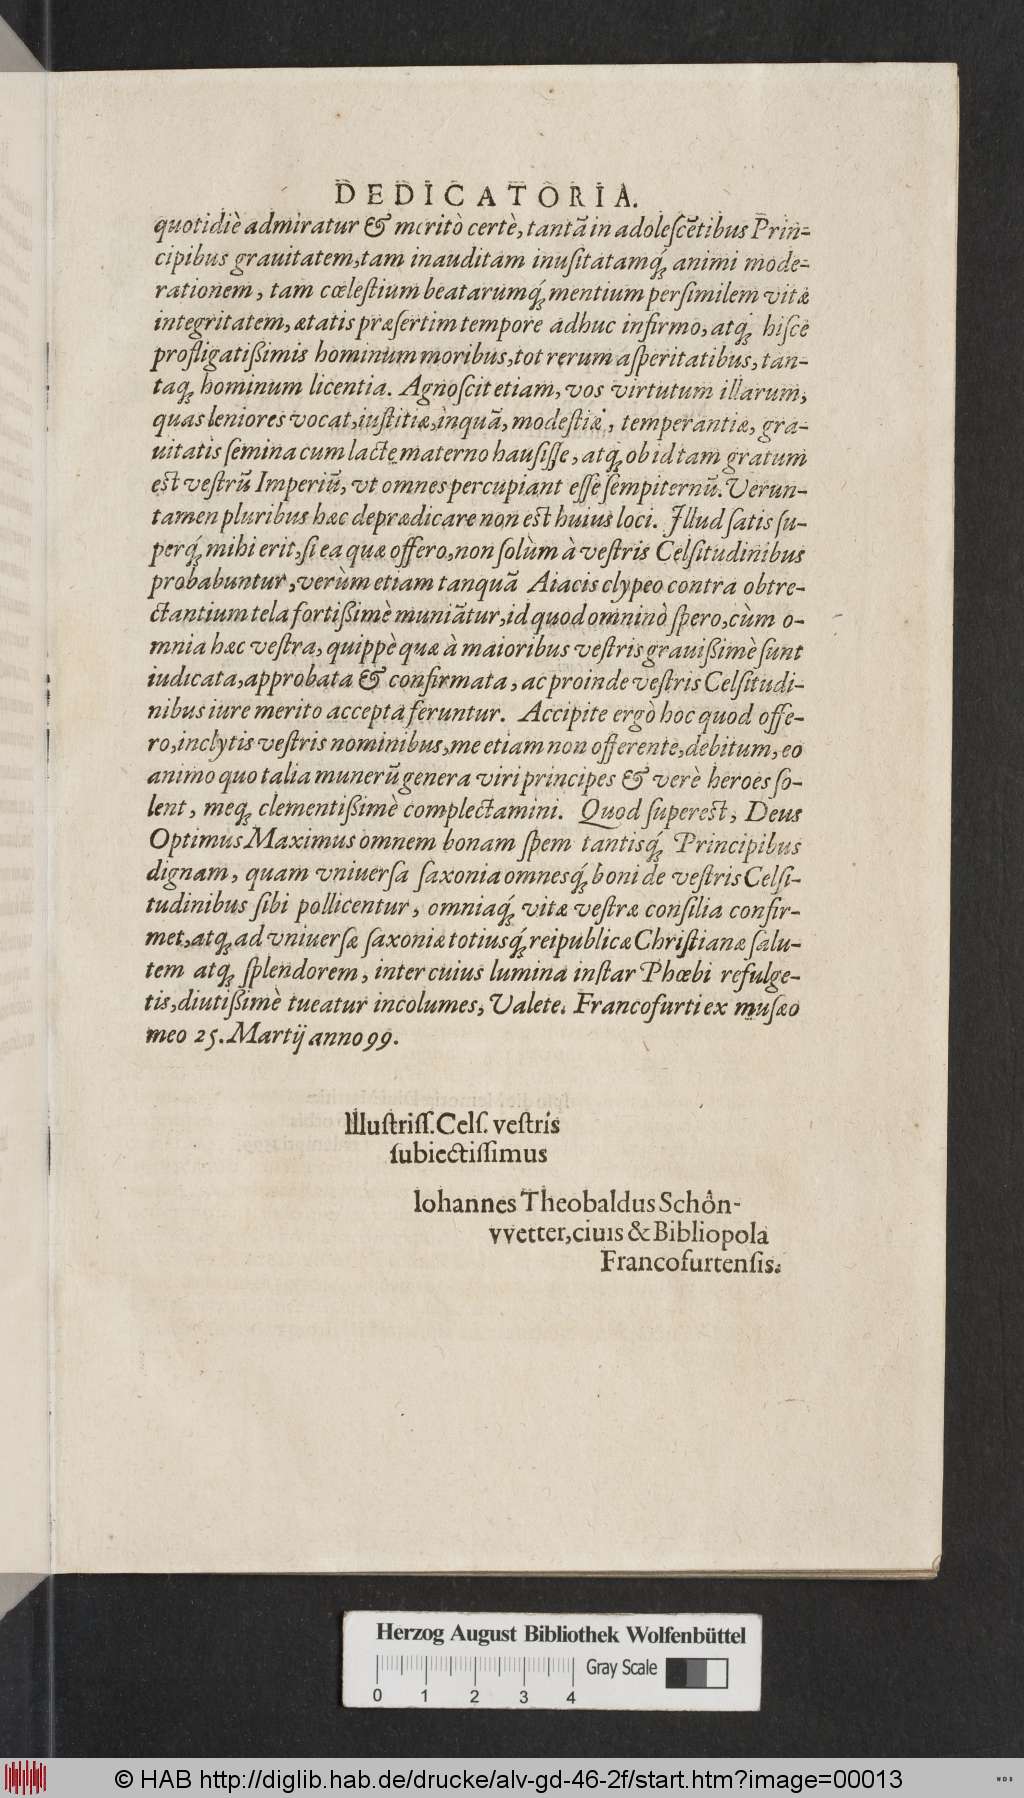 DEDICATORIA.
quotidiè admiratur & meritò certè, tantã in adoleſcẽtibus Prin-
cipibus grauitatem, tam inauditam inuſitatamq́; animi mode-
rationem, tam cœleſtium beatarumq́; mentium perſimilem vitæ
integritatem, ætatis præſertim tempore adhuc infirmo, atq́; hiſce
profligatißimis hominum moribus, tot rerum aſperitatibus, tan-
taq; hominum licentia. Agnoſcit etiam, vos virtutum illarum,
quas leniores vocat, iuſtitiæ, inquã, modeſtiæ, temperantiæ, gra-
uitatis ſemina cum lacte materno hauſiſſe, atq; ob id tam gratum
eſt veſtrũ Imperiũ, vt omnes percupiant eſſe ſempiternũ. Verun-
tamen pluribus hæc deprædicare non eſt huius loci. Illud ſatis ſu-
perq́; mihi erit, ſi ea quæ offero, non ſolùm à veſtris Celſitudinibus
probabuntur, verùm etiam tanquã Aiacis clypeo contra obtre-
ctantium tela fortißimè muniãtur, id quod omninò ſpero, cùm o-
mnia hæc veſtra, quippè quæ à maioribus veſtris grauißimè ſunt
iudicata, approbata & confirmata, ac proinde veſtris Celſitudi-
nibus iure merito accepta feruntur. Accipite ergò hoc quod offe-
ro, inclytis veſtris nominibus, me etiam non offerente, debitum, eo
animo quo talia munerũ genera viri principes & verè heroes ſo-
lent, meq; clementißimè complectamini. Quod ſupereſt, Deus
Optimus Maximus omnem bonam ſpem tantisq́; Principibus
dignam, quam vniuerſa ſaxonia omnesq́; boni de veſtris Celſi-
tudinibus ſibi pollicentur, omniaq́; vitæ veſtræ conſilia confir-
met, atq; ad vniuerſæ ſaxoniæ totiusq́; reipublicæ Chriſtianæ ſalu-
tem atq; ſplendorem, inter cuius lumina inſtar Phœbi refulge-
tis, diutißimè tueatur incolumes, Valete. Francofurti ex muſæo
meo 25. Martij anno 99.
Illuſtriſſ. Celſ. veſtris
ſubiectiſſimus
Iohannes Theobaldus Schoͤn-
vvetter, ciuis & Bibliopola
Francofurtenſis.
Herzog August Bibliothek Wolfenbüttel
Gray Scale
0 1 2 3 4
© HAB http://diglib.hab.de/drucke/alv-gd-46-2f/start.htm?image=00013